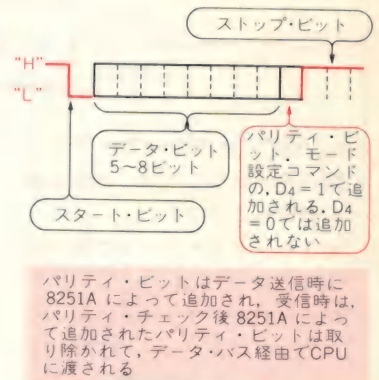 ストップ・ビット
“H”
“L”
データ・ビット
5〜8ビット
パリティ・ビ
ット．モード
設定コマンド
の，D4＝1で追
加される．D4
＝0では追加
されない
スタート・ビット
パリティ・ビットはデータ送信時に
8251A によって追加され，受信時は，
パリティ・チェック後 8251A によっ
て追加されたパリティ・ビットは取
り除かれて，データ・バス経由でCPU
に渡される